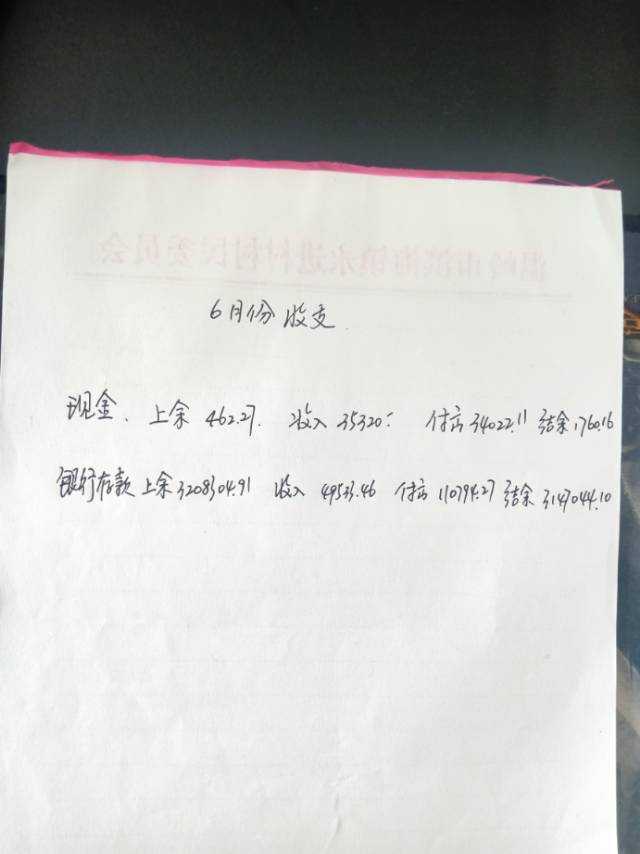 温岭市滨海镇永进村村民委员会
6月份收支
现金、上余 462.27. 收入 35320: 付方 34022.11 结余 1760.16
银行存款 上余 3208304.91 收入 49533.46 付方 110794.27 结余 3147044.10